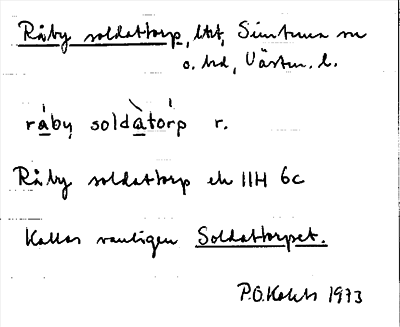 Råby soldattorp, lht, Simtuna sn
o. hd, Västm. l.
råby soldàtorp r.
Råby soldattorp ek 11H 6c
Kallas vanligen Soldattorpet.
1973